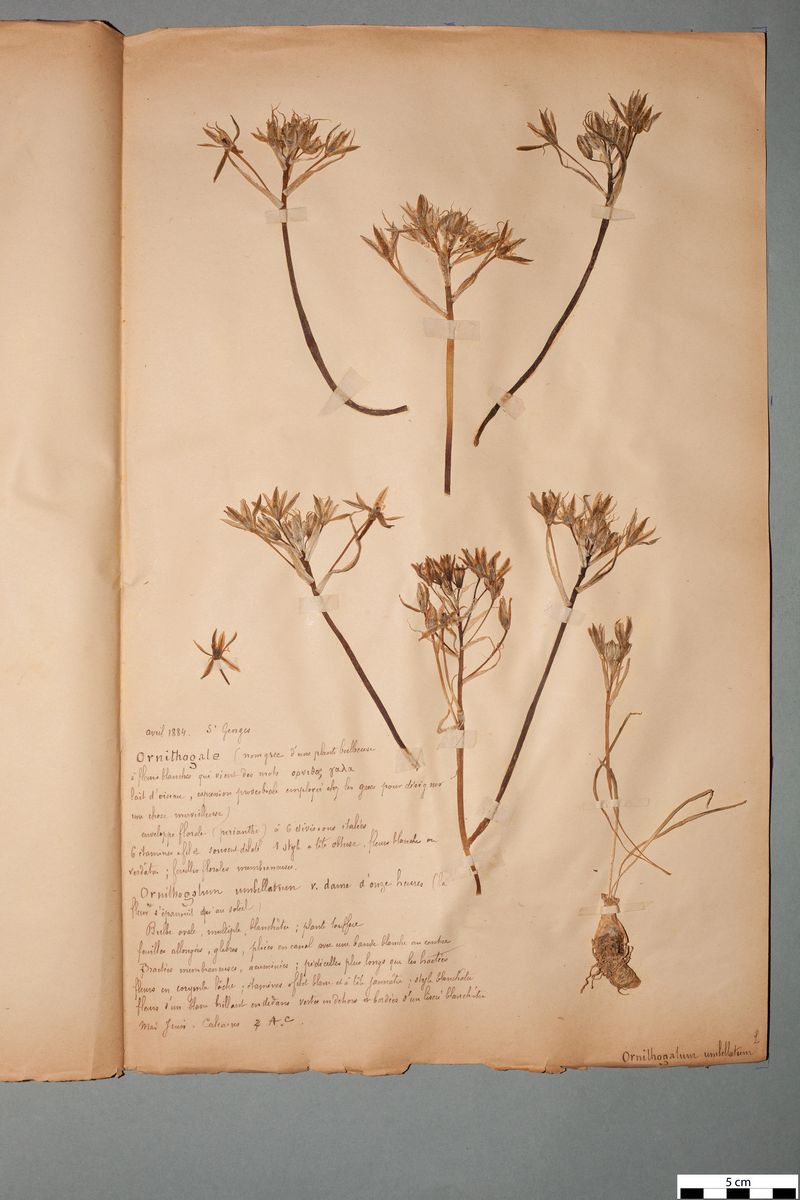 avril 1884. St Georges
Ornithogale (nom grec d'une plante bulbeuse
à fleurs blanches qui vient des mots ορνιθος γαλα
lait d'oiseau, expression proverbiale employée chez les grecs pour désigner
une chose merveilleuse)
enveloppe florale (périanthe) à 6 divisions étalées
6 étamines à filet souvent dilaté 1 style à tête obtuse, fleurs blanches ou
verdâtres ; feuilles florales membraneuses.
Ornithogalum umbellatum v. dame d'onze heures (la
fleur s'épanouit au soleil)
Bulbe ovale, multiple, blanchâtre ; plante touffue
feuilles allongées, glabres, pliées en canal avec une bande blanche au centre
Bractées membraneuses, acuminées ; pédicelles plus longs que les bractées
fleurs en corymbe lâche ; étamines à filet blanc et à tête jaunâtre ; style blanchâtre
fleurs d'un blanc brillant en dedans vertes en dehors et bordées d'un liseré blanchâtre
Mai Juin. Calcaires ♃ A.C.
Ornithogalum umbellatum L
5 cm